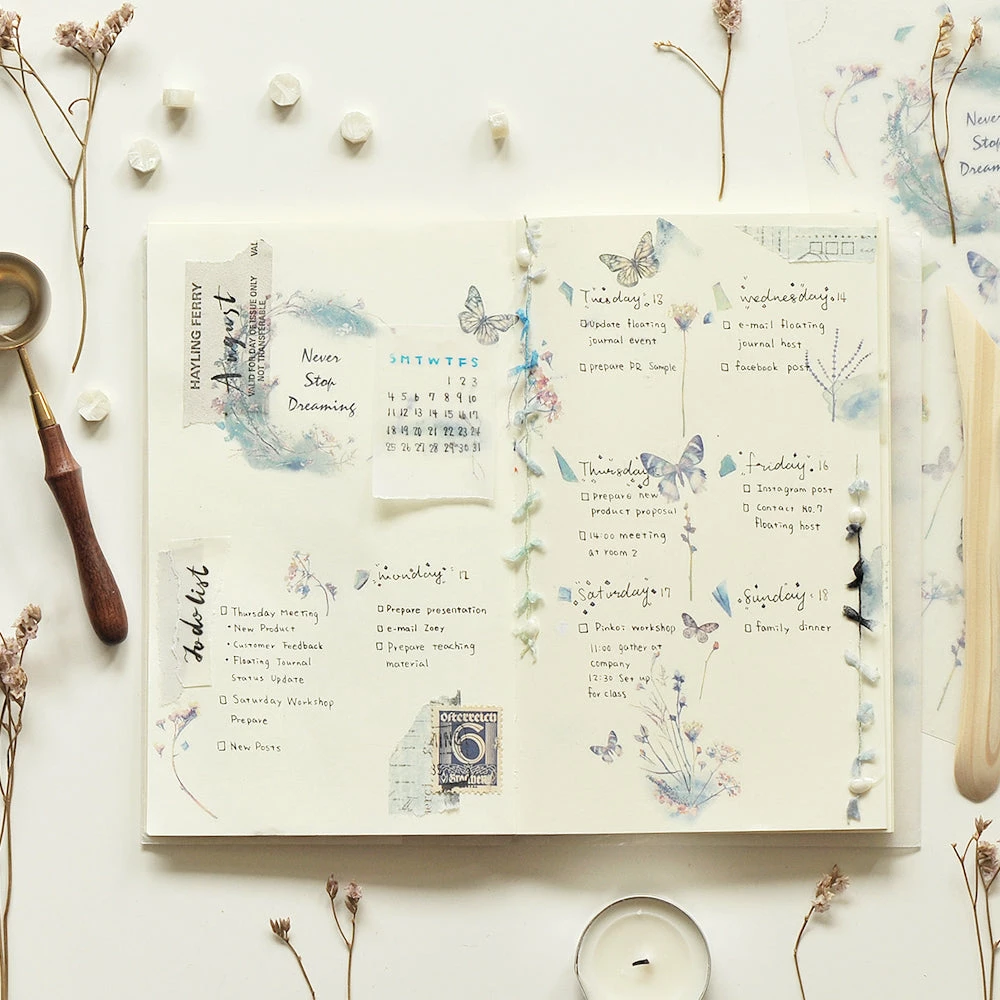 HAYLING FERRY
August
VALID FOR DAY OF ISSUE ONLY
NOT TRANSFERABLE
VAL
Never
Stop
Dreaming
S M T W T F S
1 2 3
4 5 6 7 8 9 10
11 12 13 14 15 16 17
18 19 20 21 22 23 24
25 26 27 28 29 30 31
To do list
Thursday Meeting
• New Product
• Customer Feedback
• Floating Journal
Status Update
Saturday Workshop
Prepare
New Posts
monday 12
Prepare presentation
e-mail Zoey
Prepare teaching
material
österreich
6
Groschen
Tuesday 13
Update floating
journal event
prepare PR Sample
wednesday 14
e-mail floating
journal host
facebook post
Thursday
Prepare new
product proposal
14:00 meeting
at room 2
friday 16
Instagram post
Contact No.7
floating host
Saturday 17
Pinkoi workshop
11:00 gather at
company
12:30 Set up
for class
Sunday 18
family dinner
Never
Stop
Dream